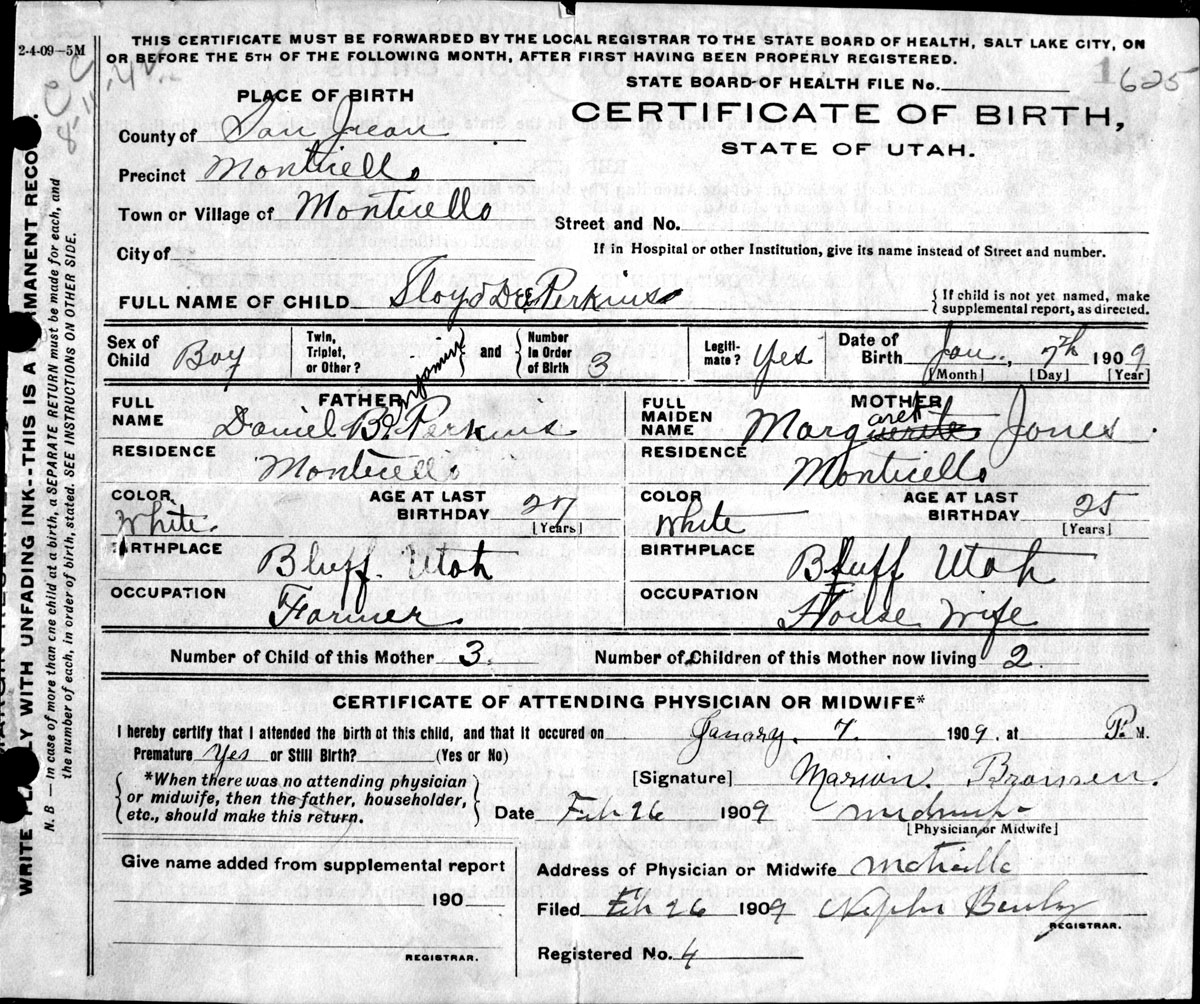 2-4-09—5M
THIS CERTIFICATE MUST BE FORWARDED BY THE LOCAL REGISTRAR TO THE STATE BOARD OF HEALTH, SALT LAKE CITY, ON
OR BEFORE THE 5TH OF THE FOLLOWING MONTH, AFTER FIRST HAVING BEEN PROPERLY REGISTERED.
STATE BOARD OF HEALTH FILE No. 1625
PLACE OF BIRTH
CERTIFICATE OF BIRTH,
STATE OF UTAH.
County of San Juan
Precinct Monticello
Town or Village of Monticello
Street and No.
City of
If in Hospital or other Institution, give its name instead of Street and number.
FULL NAME OF CHILD Lloyd Dee Perkins
{ If child is not yet named, make
supplemental report, as directed.
Sex of Child Boy
Twin, Triplet, or Other?
and { Number in Order of Birth 3
Legitimate? Yes
Date of Birth Jan. 7th 1909
[Month] [Day] [Year]
FATHER
FULL NAME Daniel B. Perkins
RESIDENCE Monticello
COLOR White.
AGE AT LAST BIRTHDAY 27
[Years]
BIRTHPLACE Bluff. Utah
OCCUPATION Farmer.
MOTHER
FULL MAIDEN NAME Margaret Jones.
RESIDENCE Monticello
COLOR White
AGE AT LAST BIRTHDAY 25
[Years]
BIRTHPLACE Bluff Utah
OCCUPATION House Wife
Number of Child of this Mother 3.
Number of Children of this Mother now living 2
CERTIFICATE OF ATTENDING PHYSICIAN OR MIDWIFE*
I hereby certify that I attended the birth of this child, and that it occured on Janary. 7. 1909. at P. M.
Premature Yes or Still Birth? (Yes or No)
{ *When there was no attending physician
or midwife, then the father, householder,
etc., should make this return. }
[Signature] Marion.
Date Feb 26 1909
[Physician or Midwife]
Give name added from supplemental report
190
REGISTRAR.
Address of Physician or Midwife
Filed Feb 26 1909
REGISTRAR.
Registered No. 4
WRITE PLAINLY WITH UNFADING INK--THIS IS A PERMANENT RECORD.
N. B — In case of more than one child at a birth, a SEPARATE RETURN must be made for each, and
the number of each, in order of birth, stated. SEE INSTRUCTIONS ON OTHER SIDE.